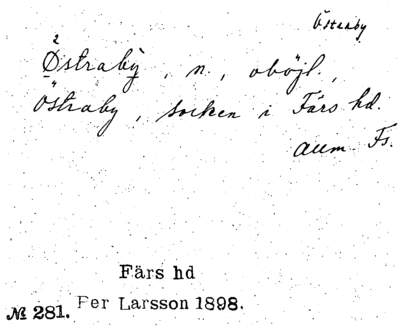 Östraby
2
Østraby, n., oböjl.,
Östraby, socken i Färs hd.
allm. Fs.
Färs hd
№ 281. Per Larsson 1898.